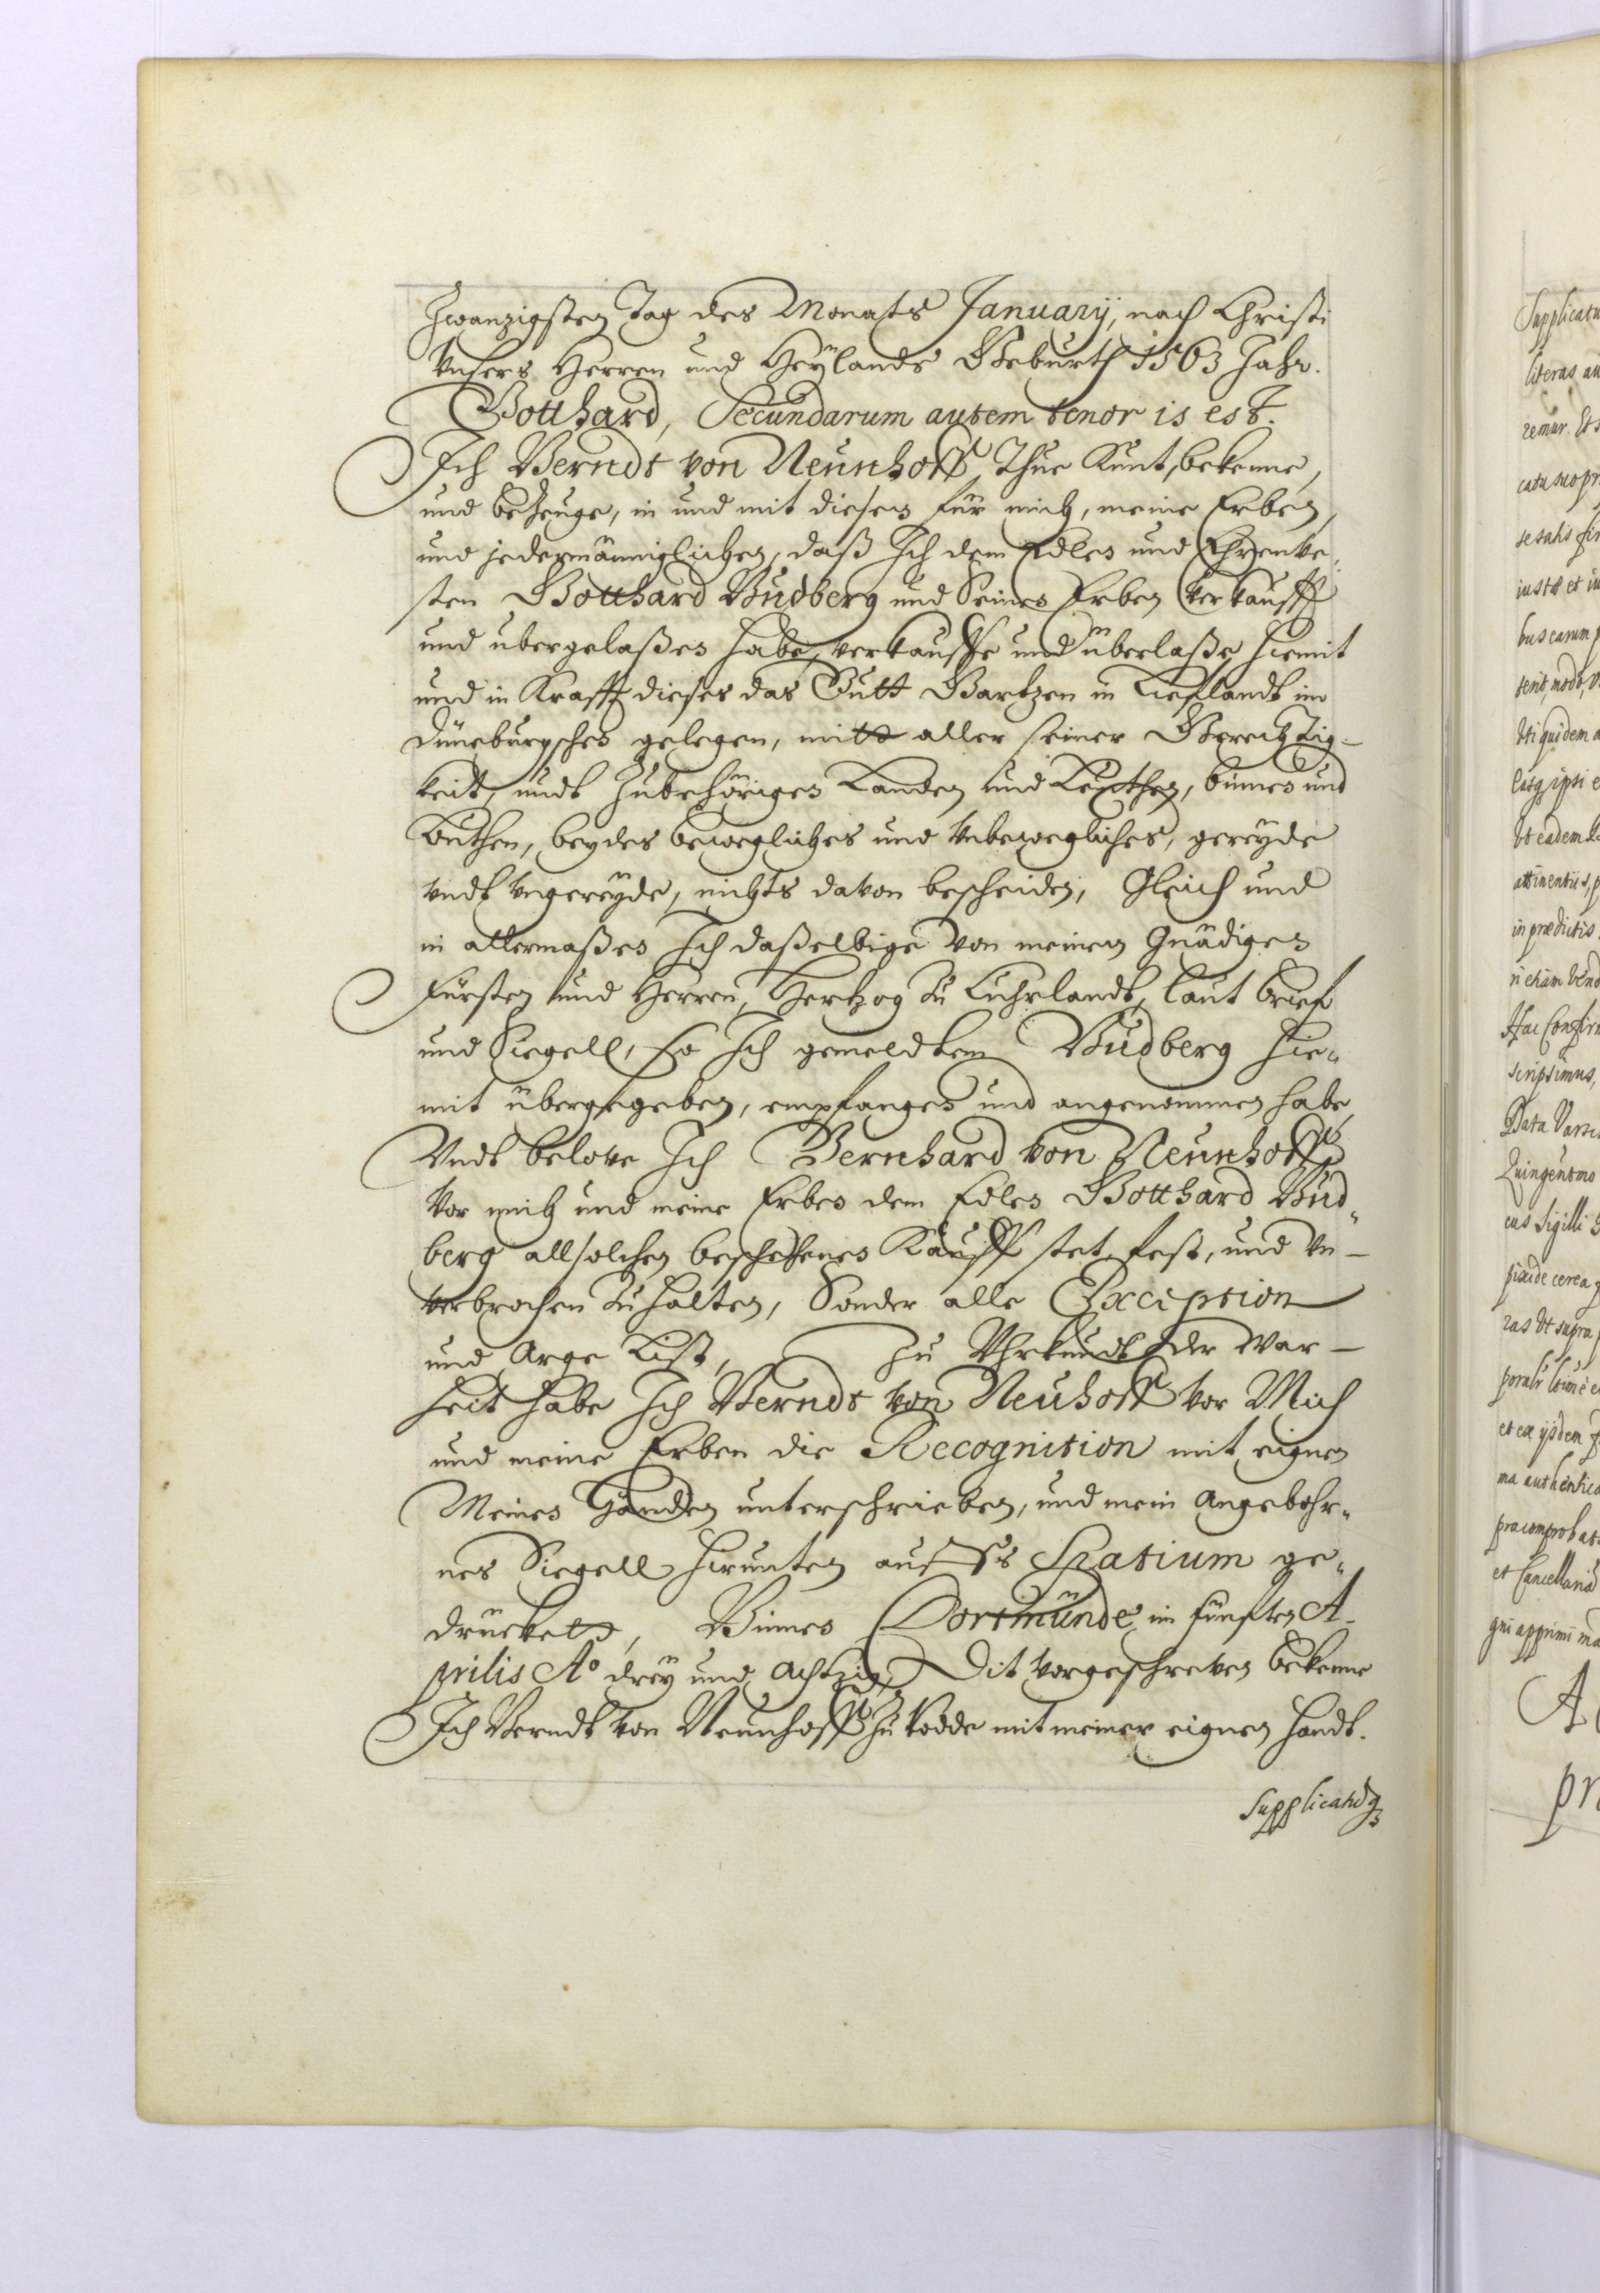 Zwanzigsten Tag des Monats Januarij, nach Christi
Vnsers Herren und Heÿlands Geburth 1563 Jahr.
Gotthard, Secundarum autem tenor is est.
Ich Berndt von Neunhoff, Thue Kunt, bekenne,
und bezeuge, in und mit diesen für mich, meine Erben,
und jedermänniglichen, daß Ich dem Edlen und Ehrenve„
sten Gotthard Budberg und Seinen Erben verkaufft
und ubergelaßen habe, verkauffe und überlaße hiemit
und in Krafft dieses das Gutt Gartzen in Lieflandt im
Düneburgschen gelegen, mitt aller seiner Gerechtig-
keit, undt Zubehörigen Landen und Leuthen, binnen und
Buthen, beydes bewegliches und Vnbewegliches, gereÿde
undt Vngereÿde, nichts davon bescheiden, Gleich und
in allermaßen Ich daßelbige von meinen Gnädigen
Fürsten und Herren, Hertzog zu Cuhrlandt, laut brieff
und Siegell, so Ich gemeldtem Budberg hie„
mit übergegeben, empfangen und angenommen habe,
Vndt belove Ich Bernhard von Neunhoff
Vor mich und meine Erben dem Edlen Gotthard Bud„
berg allsolchen beschehenen Kauff stet, fest, und Vn-
verbrochen zu halten, Sonder alle Exception
und Arge List, Zu Uhrkundt der War-
heit habe Ich Berndt von Neuhoff vor Mich
und meine Erben die Recognition mit eignen
Meinen Händen unterschrieben, und mein Angebohr„
nes Siegell hierunten auffs Spatium ge„
drücket, Binnen Dortmünde, im fünfften A-
prilis Aº dreÿ und Achtzig, Dit vorgeschreven bekenne
Ich Berndt von Neunhoff zu Rodde mit meiner eignen Handt.
Supplicatuq3
Supplicatu
literas au
remur. Et
catu suo pr
se salis fir
iustæ et in
bus earum p
terit, modo,
Vti quidem a
Vt eadem
attinentiis, p
in prædictis
ri etiam vend
Hac Confir
scripsimus,
Data Varsa
Quingentmo
eus Sigilli
pixide cerea
ras Vt supra
et ex ijsdem
ma authentica
pracomprobat
et Cancellaria
gni apprimi ma
A
pr